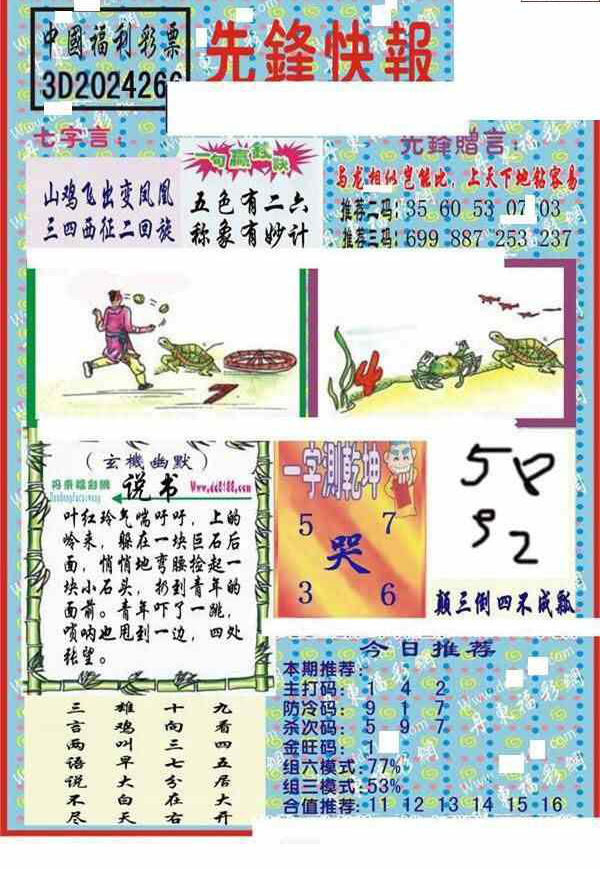 中國福利彩票
3D2024266
先鋒快報
七字言：
山鸡飞出变凤凰
三四西征二回旋
一句赢彩诀
五色有二六
称象有妙计
先鋒贈言：
与龙相似岂能比，上天下地钻容易
推荐二码：35 60 53 07 03
推荐三码：699 887 253 237
(玄機幽默)
丹東福彩網
Www.dd8188.com
说书
叶红玲气喘吁吁，上的
岭来，躲在一块巨石后
面，悄悄地弯腰捡起一
块小石头，扔到青年的
面前。青年吓了一跳，
唢呐也甩到一边，四处
张望。
一字測乾坤
5 7
哭
3 6
58
92
颠三倒四不成瓢
三言两语说不尽
雄鸡叫早大白天
十向三七分在右
九看四五居大开
今日推荐
本期推荐：
主打码：1 4 2
防冷码：9 1 7
杀次码：5 9 7
金旺码：1
组六模式：77%
组三模式：53%
合值推荐：11 12 13 14 15 16